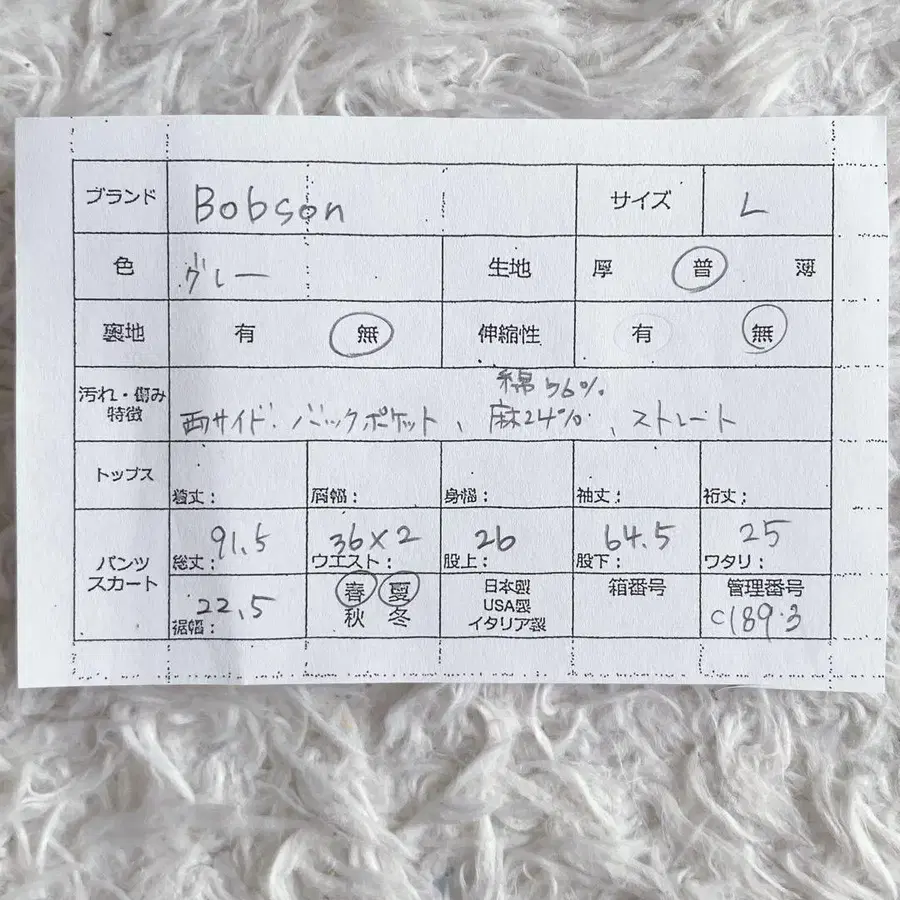 ブランド Bobson サイズ L
色 グレー 生地 厚 普 薄
裏地 有 無 伸縮性 有 無
綿76%
汚れ・傷み
特徴 両サイド・バックポケット、麻24%、ストレート
トップス 着丈: 肩幅: 身幅: 袖丈: 裄丈:
91.5 36×2 26 64.5 25
パンツ
スカート 総丈: ウエスト: 股上: 股下: ワタリ:
22.5
裾幅:
春 夏
秋 冬
日本製
USA製
イタリア製
箱番号
管理番号
C189.3